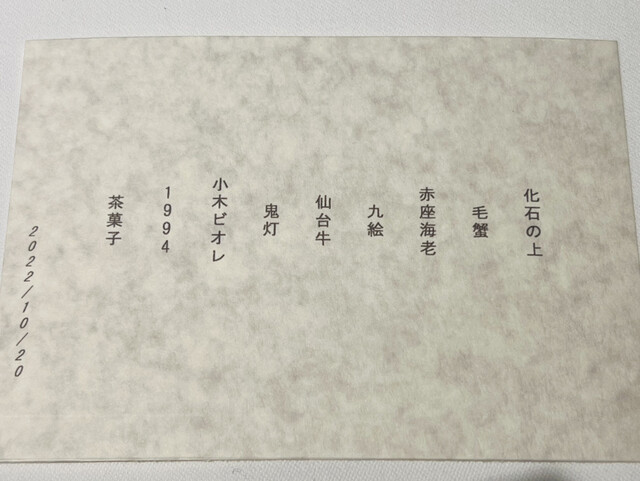 化石の上
毛蟹
赤座海老
九絵
仙台牛
鬼灯
小木ビオレ
1994
茶菓子
2022/10/20